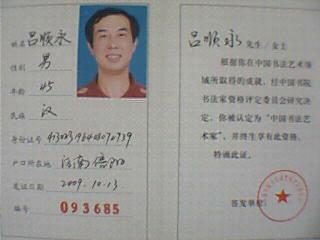 姓名 吕顺永
性别 男
年龄 45
民族 汉
身份证号
户口所在地 河南
发证日期 2009.10.13.
编号 093685
吕顺永 先生/女士
根据你在中国书法艺术领
域所取得的成就，经中国书院
书法家资格评定委员会研究决
定，你被认定为“中国书法艺
术家”，并终生享有此资格。
特颁此证。
签发单位：